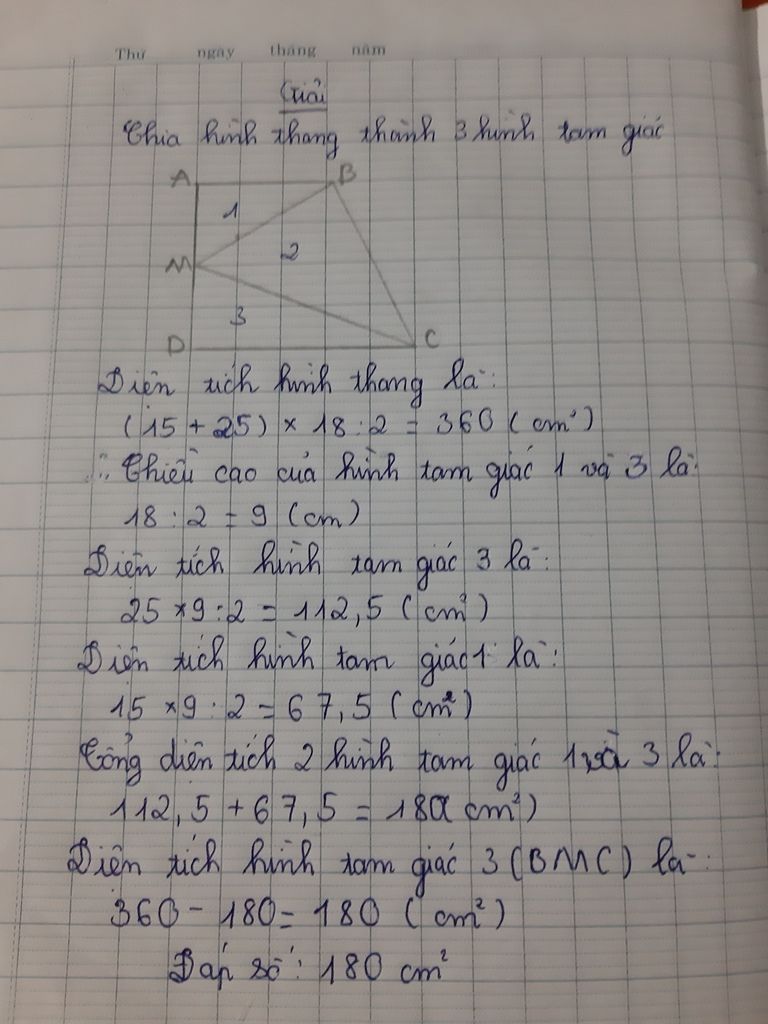 Thứ ngày tháng năm
Giải
Chia hình thang thành 3 hình tam giác
A B
1
2
M
3
D C
Diện tích hình thang là:
(15 + 25) × 18 : 2 = 360 (cm²)
Chiều cao của hình tam giác 1 và 3 là:
18 : 2 = 9 (cm)
Diện tích hình tam giác 3 là:
25 × 9 : 2 = 112,5 (cm²)
Diện tích hình tam giác 1 là:
15 × 9 : 2 = 67,5 (cm²)
Tổng diện tích 2 hình tam giác 1 và 3 là:
112,5 + 67,5 = 180( cm²)
Diện tích hình tam giác 3 (BMC) là:
360 - 180 = 180 (cm²)
Đáp số: 180 cm²